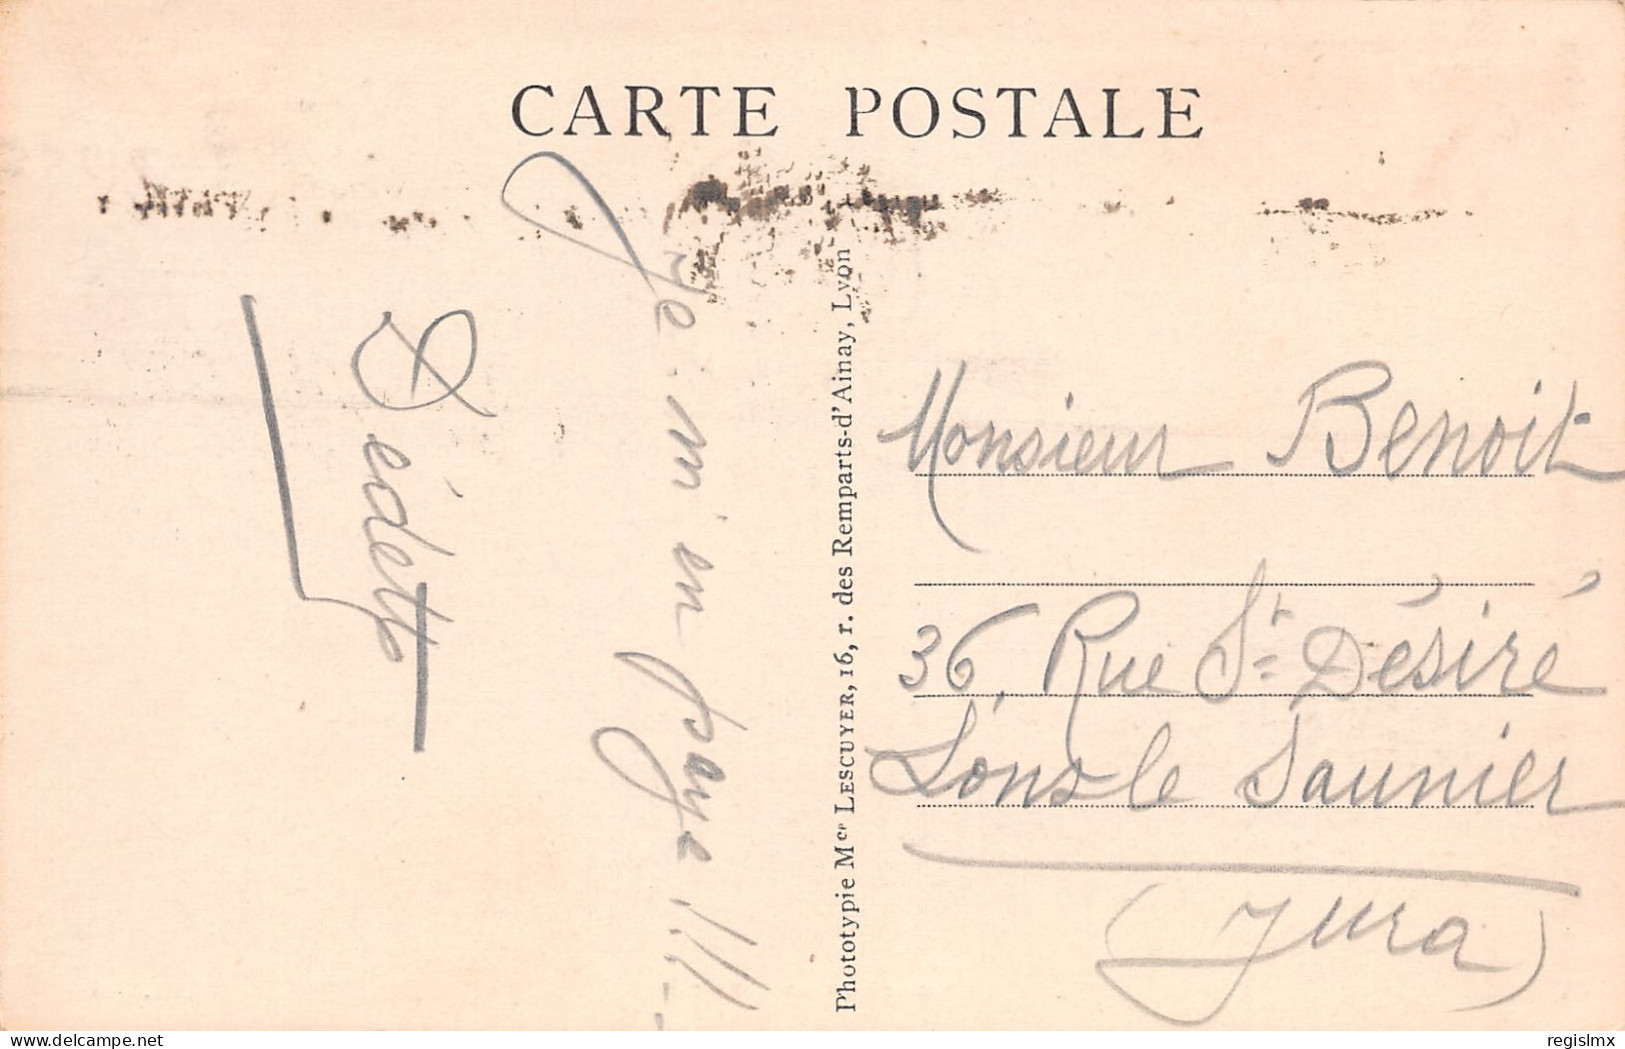 CARTE POSTALE
Je m'en paye !!!
Dédette
Phototypie Mce LESCUYER, 16, r. des Remparts-d'Ainay, Lyon
Monsieur Benoit
36, Rue St Désiré
Lons le Saunier
(Jura)
regislmx